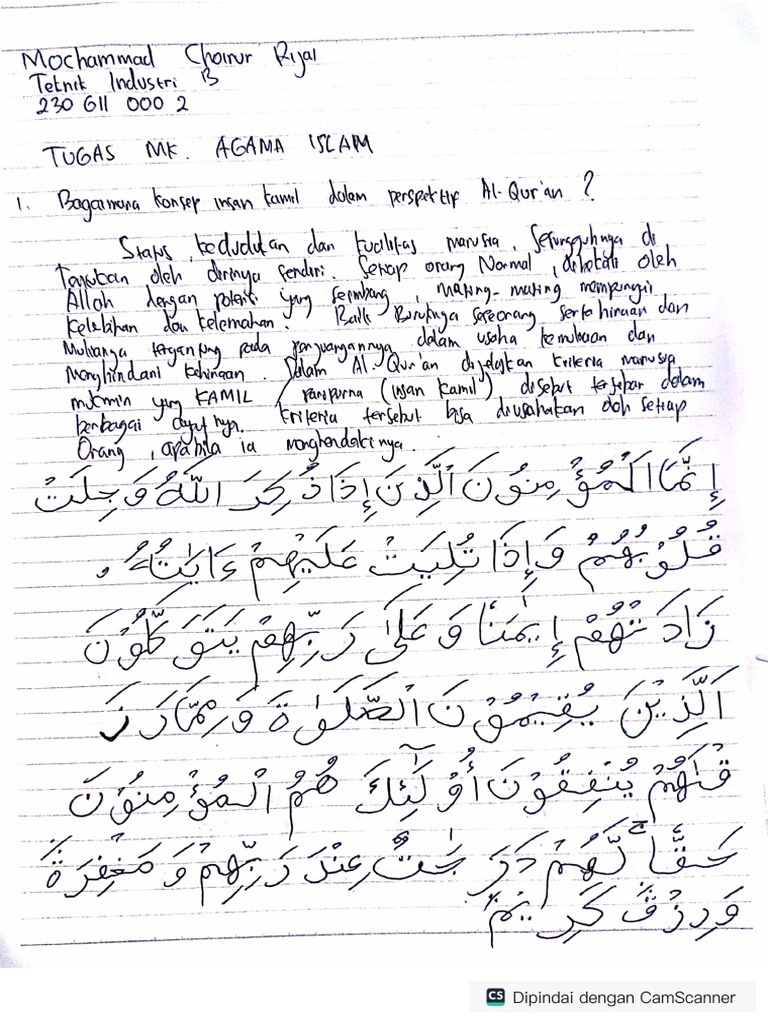 Mochammad Choirur Rijal
Teknik Industri B
230 611 000 2
TUGAS MK. AGAMA ISLAM
1. Bagaimana konsep insan kamil dalam perspektif Al-Qur'an ?
Status, kedudukan dan kualitas manusia, Sesungguhnya di
Tentukan oleh dirinya sendiri. Setiap orang Normal, dibekali oleh
Allah dengan potensi yang seimbang, masing-masing mempunyai
kelebihan dan kelemahan. Baik Buruknya seseorang serta hinaan dan
Mulianya tergantung pada perjuangannya dalam usaha kemuliaan dan
Menghindari kehinaan. Dalam Al-Qur'an dijelaskan kriteria manusia
mukmin yang KAMIL / paripurna (insan kamil) disebut tersebar dalam
berbagai ayatnya. kriteria tersebut bisa diusahakan oleh setiap
Orang, apabila ia menghendakinya.
إِنَّمَا الْمُؤْمِنُونَ الَّذِينَ إِذَا ذُكِرَ اللَّهُ وَجِلَتْ
قُلُوبُهُمْ وَإِذَا تُلِيَتْ عَلَيْهِمْ ءَايَٰتُهُۥ
زَادَتْهُمْ إِيمَٰنًا وَعَلَىٰ رَبِّهِمْ يَتَوَكَّلُونَ
الَّذِيْنَ يُقِيْمُوْنَ الصَّلَوٰةَ وَمِمَّا رَزَ
قْنَٰهُمْ يُنْفِقُوْنَ أُوْلَٰٓئِكَ هُمُ الْمُؤْمِنُوْنَ
حَقًّا ۚ لَّهُمْ دَرَجَٰتٌ عِنْدَ رَبِّهِمْ وَمَغْفِرَةٌ
وَرِزْقٌ كَرِيْمٌ
CS Dipindai dengan CamScanner